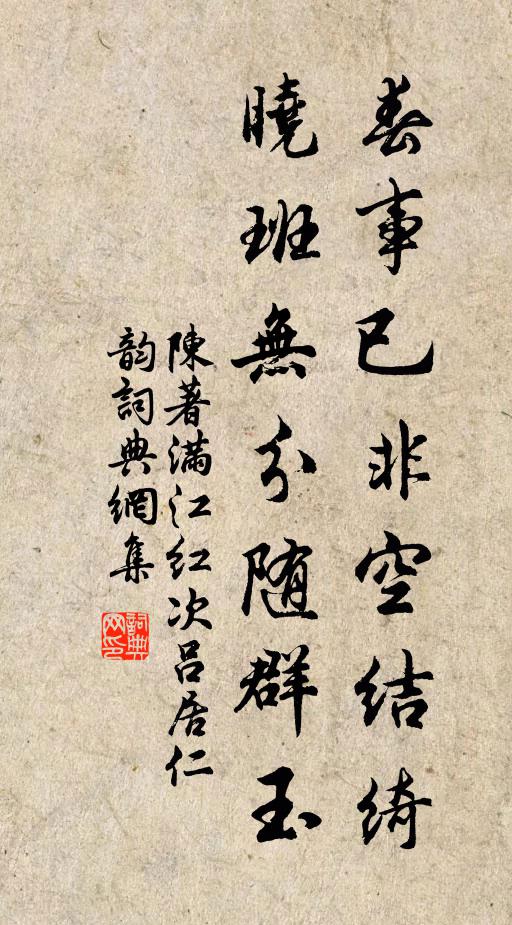 春事已非空結綺
曉班無分随群玉
陳著滿江红次吕居仁
韵詞典網集
詞典网印